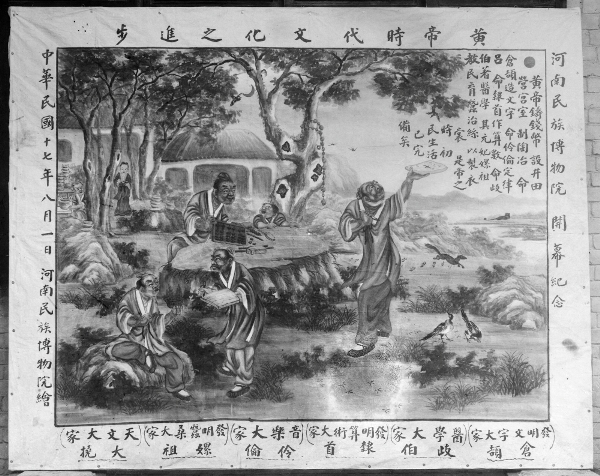 黄帝時代文化之進步
河南民族博物院開幕紀念
黄帝鑄錢幣設井田
營宮室制陶冶命
倉頡造文字命伶倫定律
呂命隸首作算數命歧
伯著醫學其元妃嫘祖
教民育蠶治絲以製衣
裳是帝之
時初
民生活
已完
備矣
中華民國十七年八月一日河南民族博物院繪
發明文字大家
倉頡
醫學大家
歧伯
發明算術大家
隸首
音樂大家
伶倫
發明蠶桑大家
嫘祖
天文大家
大撓